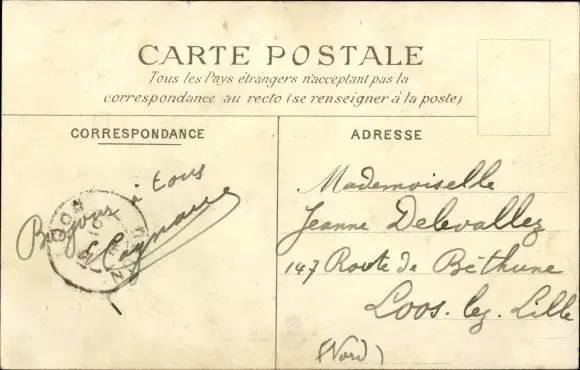 CARTE POSTALE
Tous les Pays étrangers n'acceptant pas la
correspondance au recto (se renseigner à la poste)
CORRESPONDANCE
ADRESSE
à tous
Mademoiselle
Jeanne Delevallez
147 Route de Béthune
Loos. lez. Lille
(Nord)